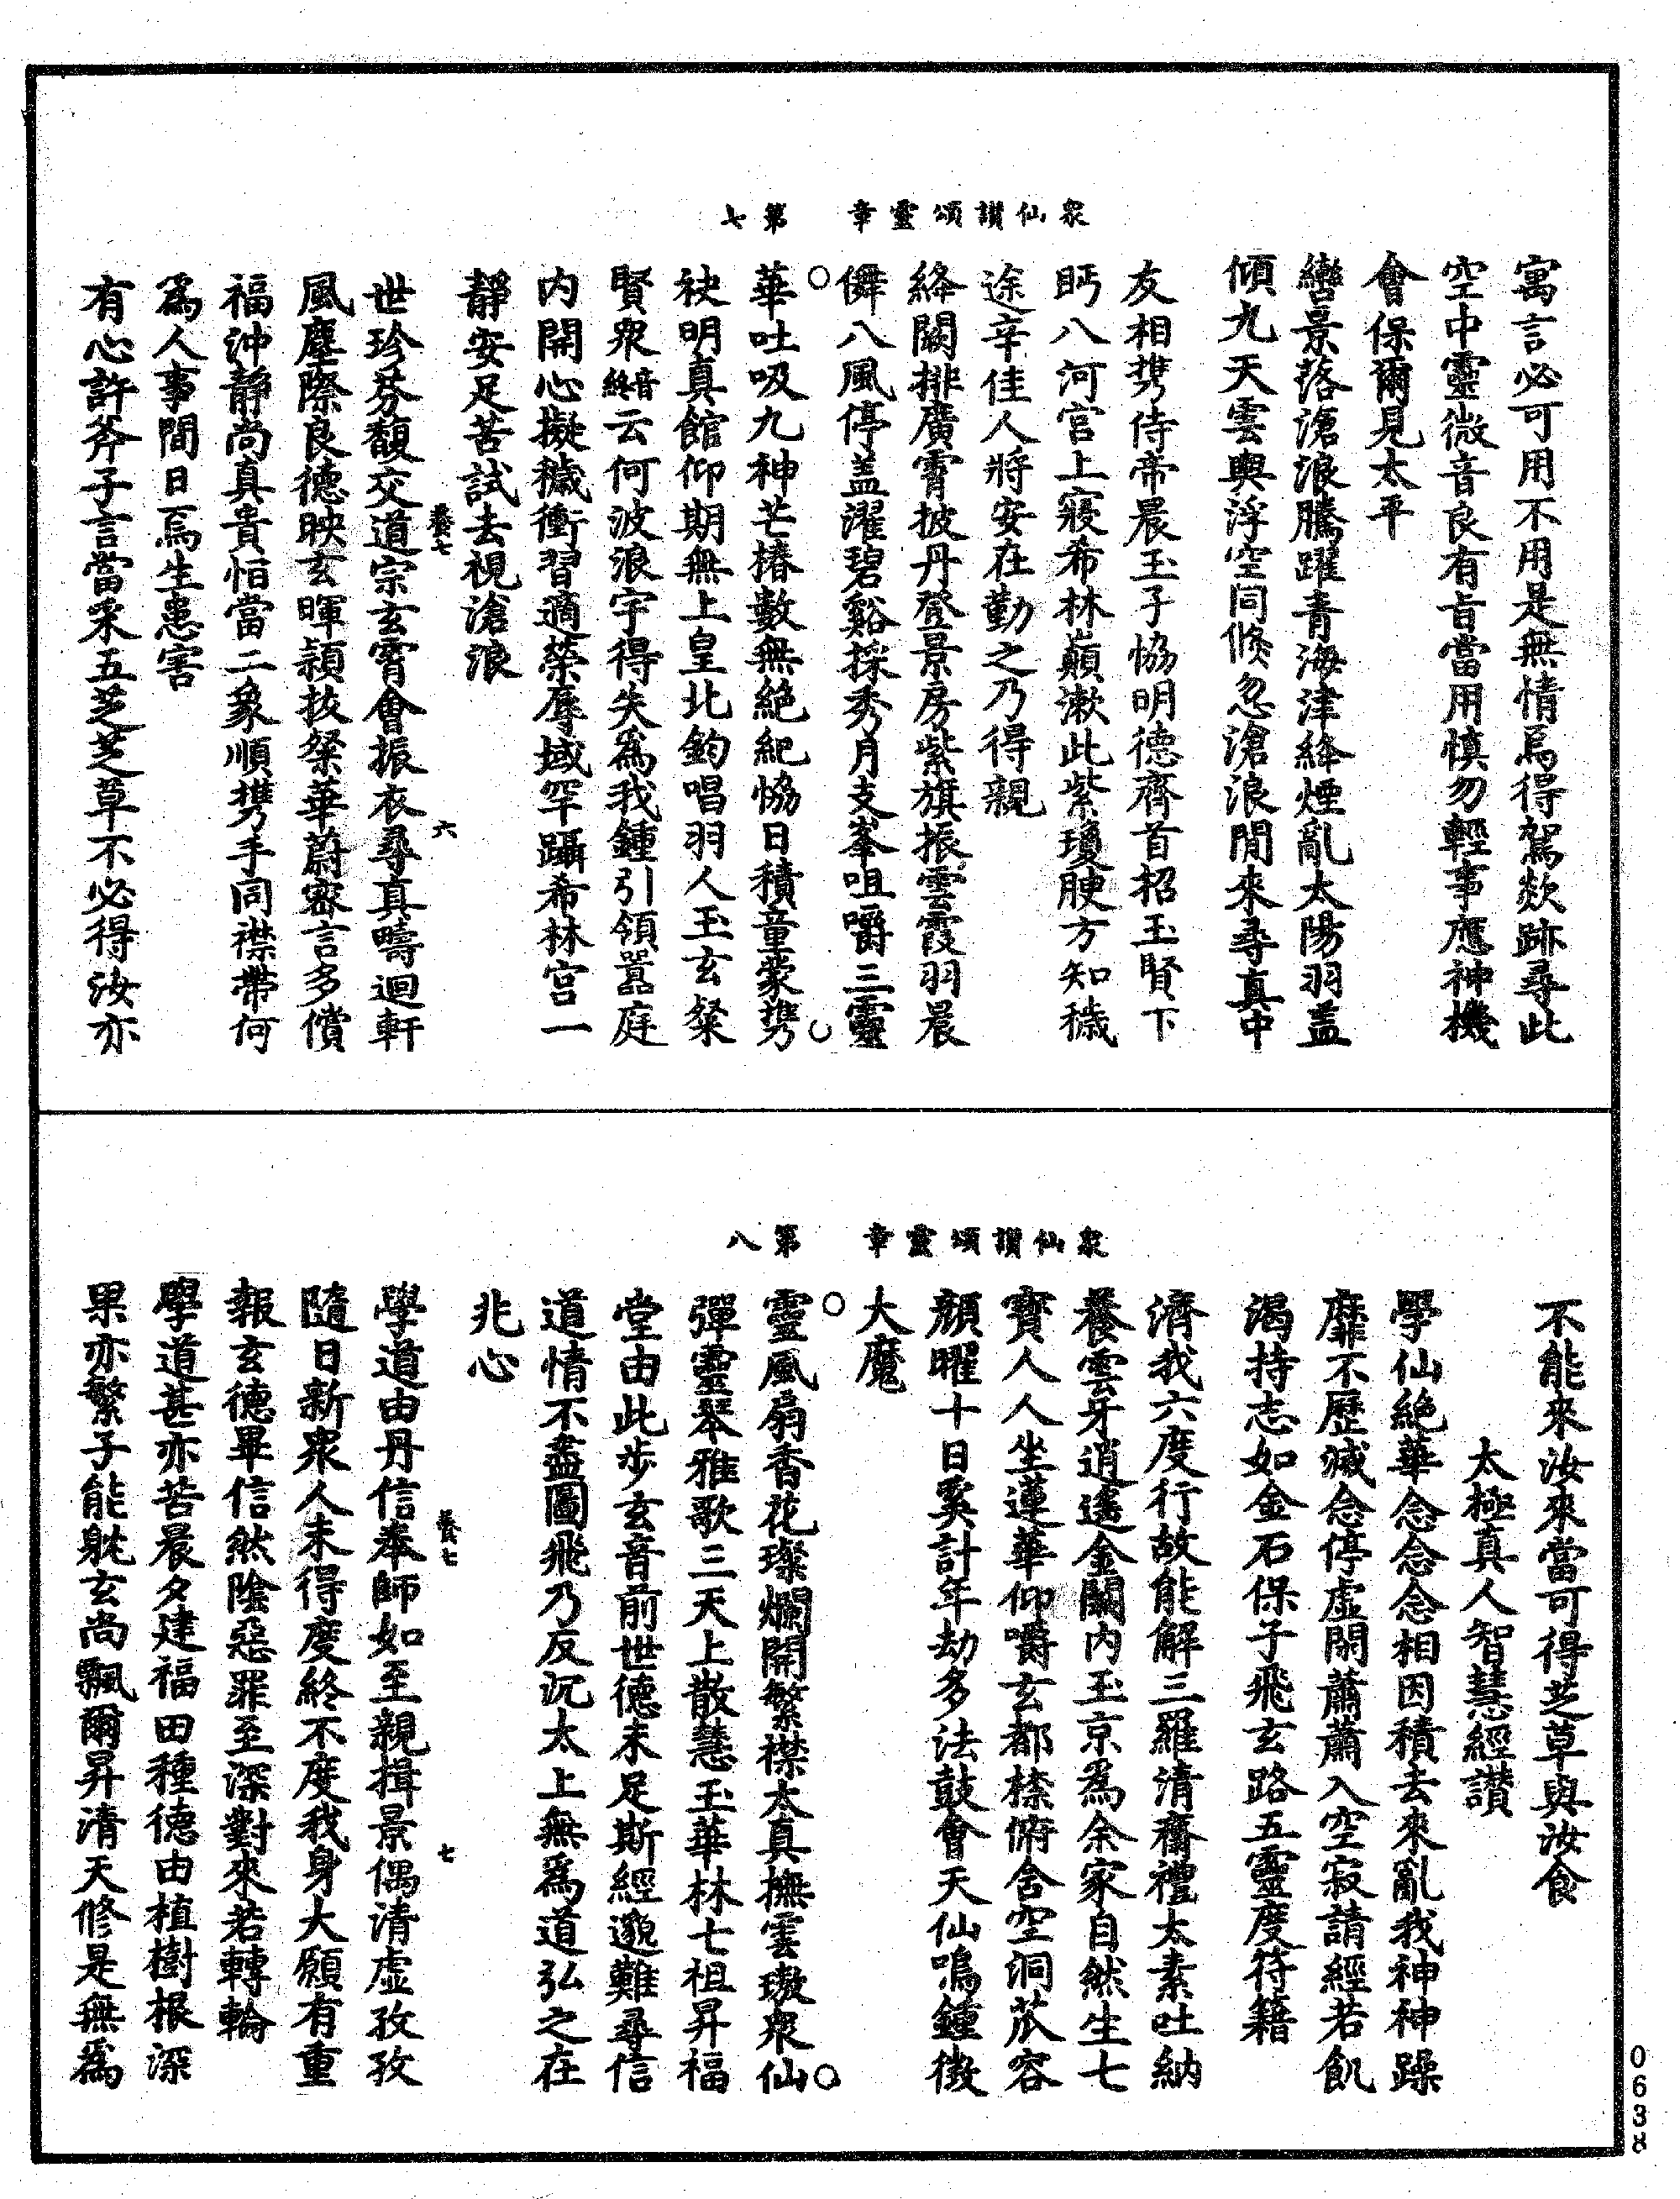 衆仙讃頌靈章　第七
寓言必可用不用是無情焉得駕欻跡尋此
空中靈微音良有旨當用慎勿輕事應神機
會保爾見太平
鸞景落滄浪騰躍青海津絳煙亂太陽羽盖
傾九天雲輿浮空同倐忽滄浪間來尋真中
友相携侍帝晨玉子恊明德齊首招玉賢下
眄八河宫上寢希林巔漱此紫瓊腴方知穢
途辛佳人將安在勤之乃得親
絳闕排廣霄披丹登景房紫旗振雲霞羽晨
儛八風停盖濯碧谿採秀月支峯咀嚼三靈
華吐吸九神芒椿數無絶紀恊日積童蒙携
袂明真館仰期無上皇北鈞唱羽人玉玄粲
賢衆音終云何波浪宇得失為我鍾引領嚣庭
内開心擬穢衝習適榮辱域罕躡希林宫一
静安足苦試去視滄浪
養七　六
世珍芬馥交道宗玄霄會振衣尋真疇迴軒
風塵際良德映玄暉頴拔粲華蔚密言多償
福沖静尚真貴怕當二象順携手同襟帶何
為人事間日焉生患害
有心許斧子言當采五芝芝草不必得汝亦
衆仙讃頌靈章　第八
不能來汝來當可得芝草與汝食
太極真人智慧經讃
學仙絶華念念念相因積去來亂我神神躁
靡不歷滅念停虚閑蕭蕭入空寂請經若飢
渴持志如金石保子飛玄路五靈度符籍
濟我六度行故能解三羅清齋禮太素吐納
養雲牙逍遙金闕内玉京為余家自然生七
寳人人坐蓮華仰嚼玄都㮈俯含空洞苽容
顔曜十日奚計年劫多法鼓會天仙鳴鍾徵
大魔
靈風扇香花璨爛開繁襟太真撫雲璈衆仙
彈靈琴雅歌三天上散慧玉華林七祖昇福
堂由此步玄音前世德未足斯經邈難尋信
道情不盡圖飛乃反沉太上無為道弘之在
兆心
養七　七
學道由丹信奉師如至親揖景偶清虚孜孜
隨日新衆人未得度終不度我身大願有重
報玄德畢信然陰惡罪至深對來若轉輪
學道甚亦苦晨夕建福田種德由植樹根深
果亦繁子能躭玄尚飄爾昇清天修是無為
0638